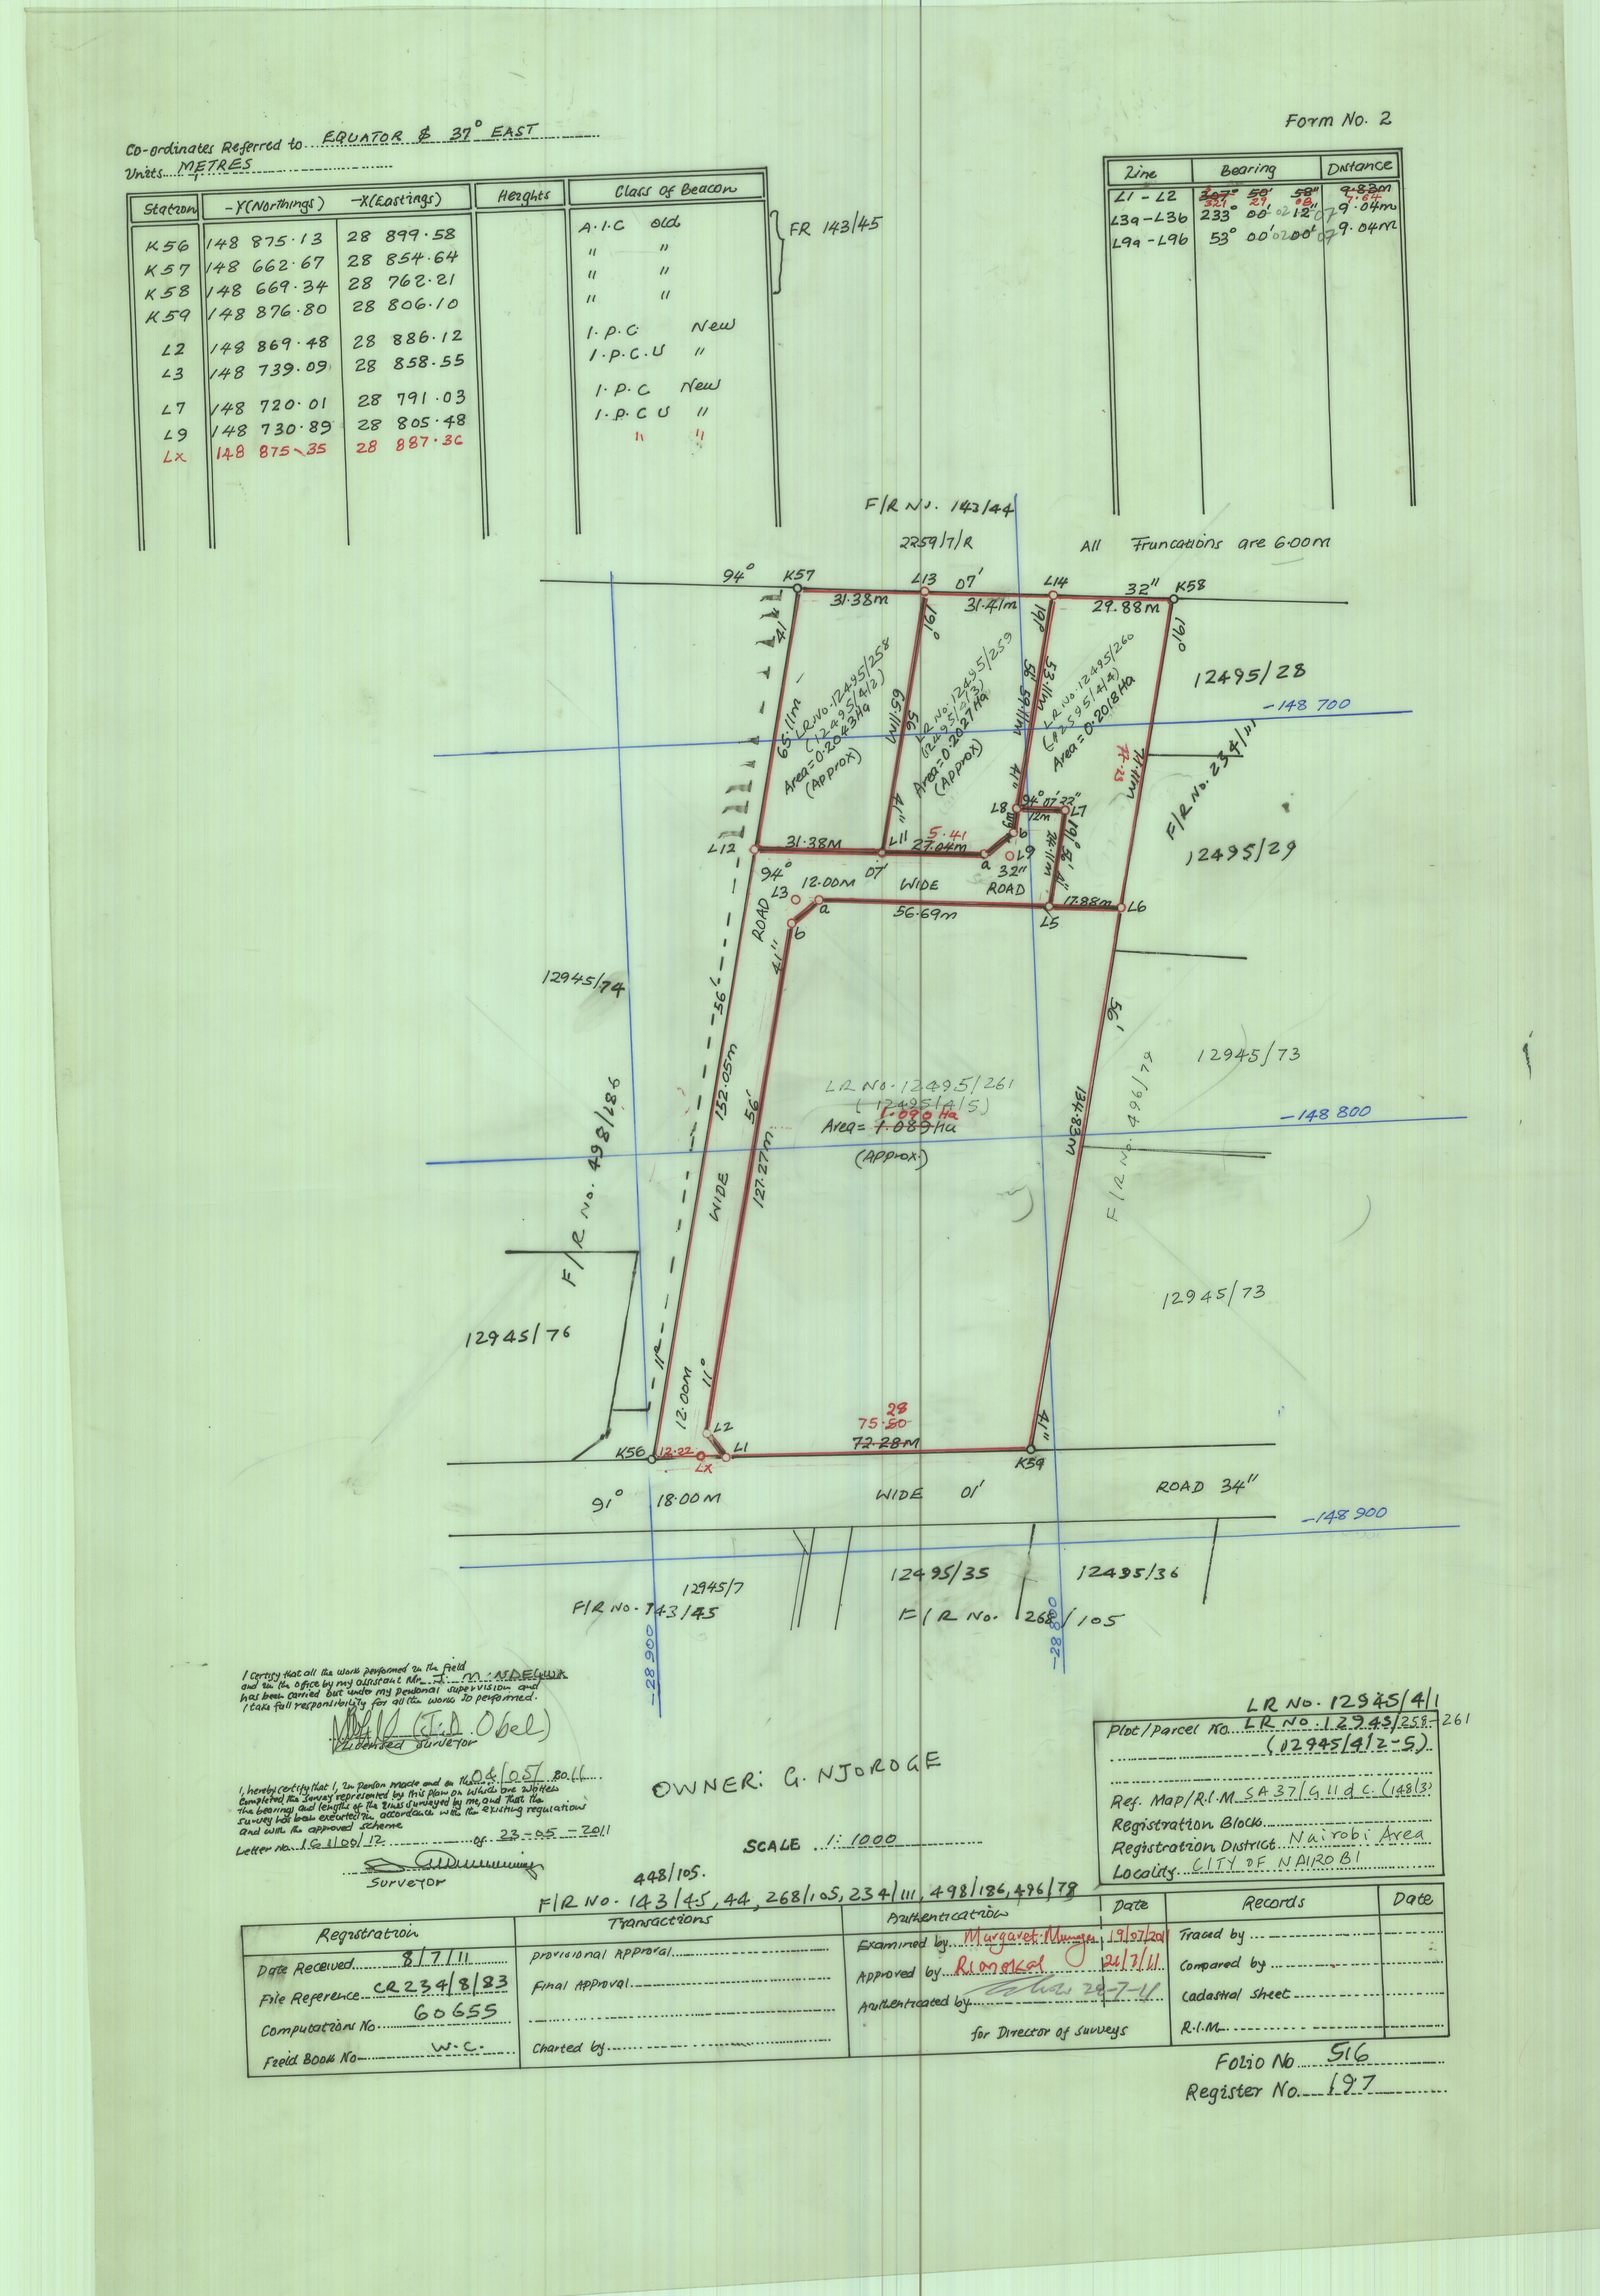 Form No. 2
Co-ordinates Referred to EQUATOR & 37° EAST
Units METRES
Station -Y(Northings) -X(Eastings) Heights Class of Beacon
K56 148 875.13 28 899.58 A.I.C Old
K57 148 662.67 28 854.64 " "
K58 148 669.34 28 762.21 " "
K59 148 876.80 28 806.10 " "
FR 143/45
L2 148 869.48 28 886.12 I.P.C. New
L3 148 739.09 28 858.55 I.P.C.U "
L7 148 720.01 28 791.03 I.P.C New
L9 148 730.89 28 805.48 I.P.C U "
Lx 148 875.35 28 887.36 " "
Line Bearing Distance
L1 - L2 307° 50' 58" 9.83m
321 29 08 7.64
L3a-L3b 233° 00' 12" 9.04m
L9a-L9b 53° 00' 00" 9.04m
F/R No. 143/44
2259/7/R
All Truncations are 6.00m
94° K57 L13 07' L14 32" K58
31.38m 31.41m 29.88m
41" 191° 191° 191°
65.11m
LR No. 12495/258
(12495/4/2)
Area=0.2043Ha
(Approx)
65.11m 56' 41"
LR No. 12495/259
(12495/4/3)
Area=0.2027Ha
(Approx)
53.11m
56' 59.11m 41"
LR No. 12495/260
(12595/4/4)
Area=0.2018Ha
77.11m
77.23
12495/28
-148 700
F/R No. 234/111
12495/29
L8 94° 07' 32" L7
12m
L12 31.38M L11 5.41
27.04m a b L9
94° 07' 32"
191° 56' 41"
24.11m
12.00M WIDE ROAD
L3 a b
56.69m L5 17.88m L6
ROAD
41"
12945/74
56'
56'
152.05m
12945/73
LR No. 12495/261
(12495/4/5)
1.090 Ha
Area= 1.089ha
(Approx.)
-148 800
F/R No. 498/186
WIDE
56'
127.27m
134.83m
F/R No. 496/79
12945/73
12945/76
11°
12.00M
11°
L2
28
75.80
72.28M
41"
K56 12.22 Lx L1 K59
91° 18.00M WIDE 01' ROAD 34"
-148 900
12945/7
F/R No. 143/45
12495/35 12495/36
F/R No. 268/105
-28 900 -28 800
I Certify that all the work performed in the field
and in the office by my assistant Mr. J. M. NDEGWA
has been carried out under my personal supervision and
I take full responsibility for all the work so performed.
(J.D. Obel)
Licensed Surveyor
I, hereby certify that I, in person made and on the 04/05/2011
Completed the survey represented by this plan on which are written
the bearings and lengths of the lines surveyed by me, and that the
survey has been executed in accordance with the existing regulations
and with the approved scheme
Letter No. of 23-05-2011
Surveyor
OWNER: G. NJOROGE
SCALE 1:1000
LR No. 12945/4/1
Plot/Parcel No. LR No. 12945/258-261
(12945/4/2-5)
Ref. Map/R.I.M. SA 37/G11 d C. (148/3)
Registration Block
Registration District Nairobi Area
Locality CITY OF NAIROBI
448/105.
F/R No. 143/45, 44, 268/105, 234/111, 498/186, 496/79
Registration Transactions Authentication Date Records Date
Date Received 8/7/11
File Reference CR 234/8/83
Computations No. 60655
Field Book No. W.C.
Provisional Approval
Final Approval
Charted by
Examined by Margaret 19/07/201
Approved by 21/7/11
Authenticated by 22-7-11
for Director of Surveys
Traced by
Compared by
Cadastral Sheet
R.I.M.
Folio No 516
Register No. 197